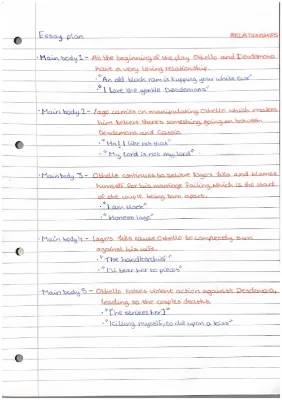 Essay plan
RELATIONSHIPS
· Main body 1 - At the beginning of the play Othello and Desdemona
have a very loving relationship.
· "An old black ram is tupping your white ewe"
· "I love the gentle Desdemona"
· Main body 2 - Iago carries on manipulating Othello which makes
him believe there's something going on between
Desdemona and Cassio.
· "Ha! I like not that"
· "My lord is not my lord"
· Main body 3 - Othello continues to believe Iago's lies and blames
himself for his marriage failing, which is the start
of the couple being torn apart.
· "I am black"
· "Honest Iago"
· Main body 4 - Iago's lies cause Othello to completely turn
against his wife.
· "The handkerchief"
· "I'll tear her to pieces"
· Main body 5 - Othello takes violent action against Desdemona,
leading to the couples deaths.
· "[He strikes her]"
· "Killing myself, to die upon a kiss"